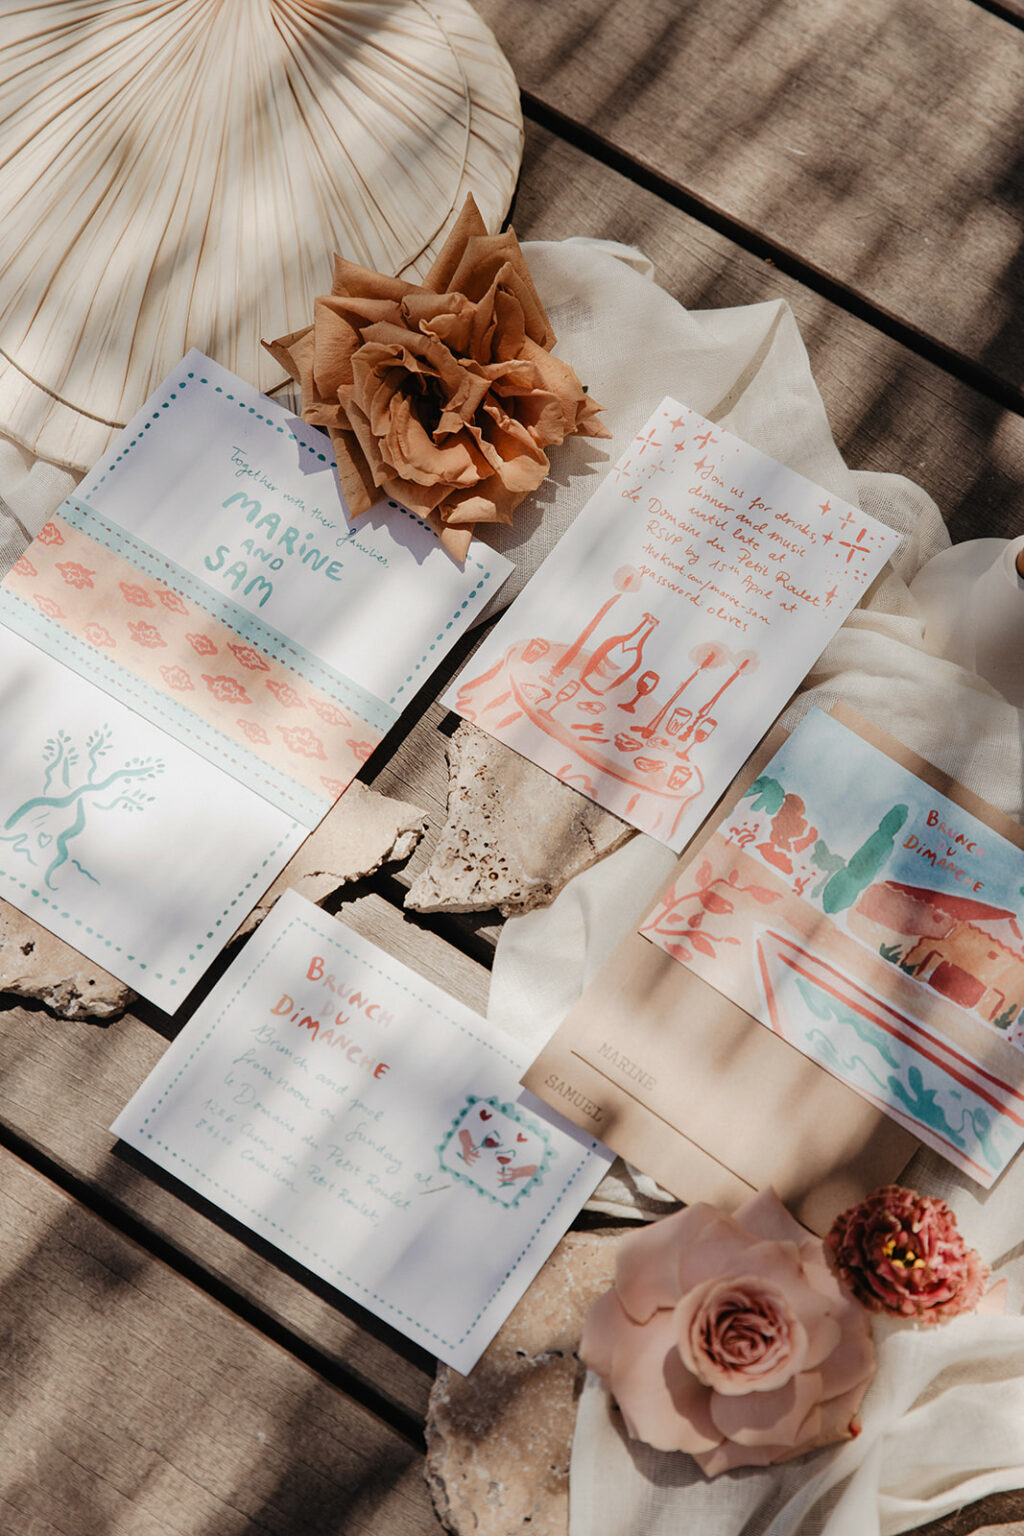 Together with their families,
MARINE
AND
SAM
Join us for drinks,
dinner and music
until late at
Le Domaine du Petit Roulet
RSVP by 15th April at
theknot.com/marine-sam
password olives
BRUNCH
DU
DIMANCHE
BRUNCH
DU
DIMANCHE
Brunch and pool
from noon on Sunday at
le Domaine du Petit Roulet
Chem. du Petit Roulet,
MARINE
SAMUEL